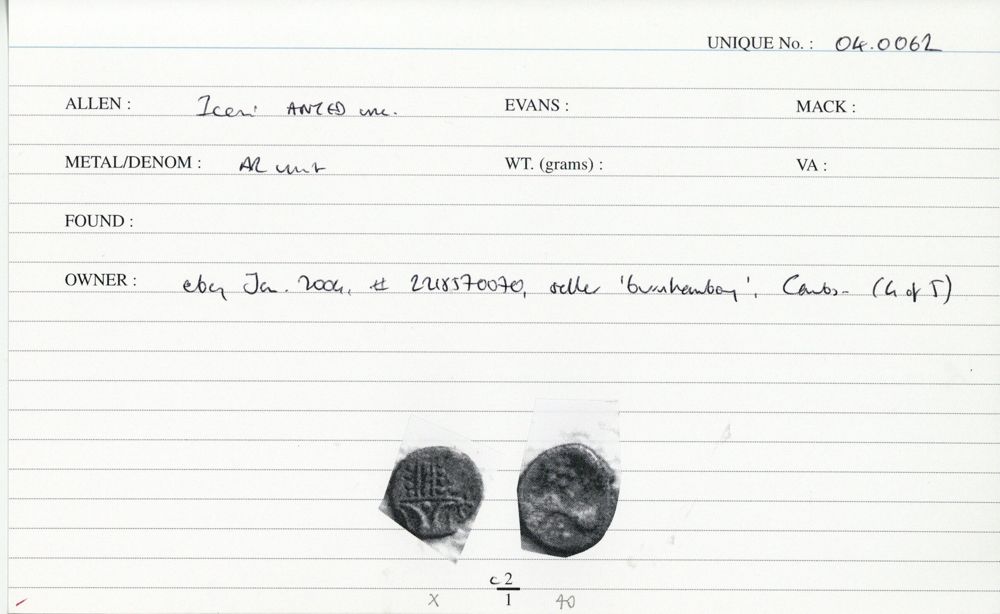 UNIQUE No. : 04.0062
ALLEN : Iceni ANTED unc. EVANS : MACK :
METAL/DENOM : AR unit WT. (grams) : VA :
FOUND :
OWNER : ebay Jan. 2004, # 2218570070, seller Cambs. (4 of 5)
c 2
X 1 40